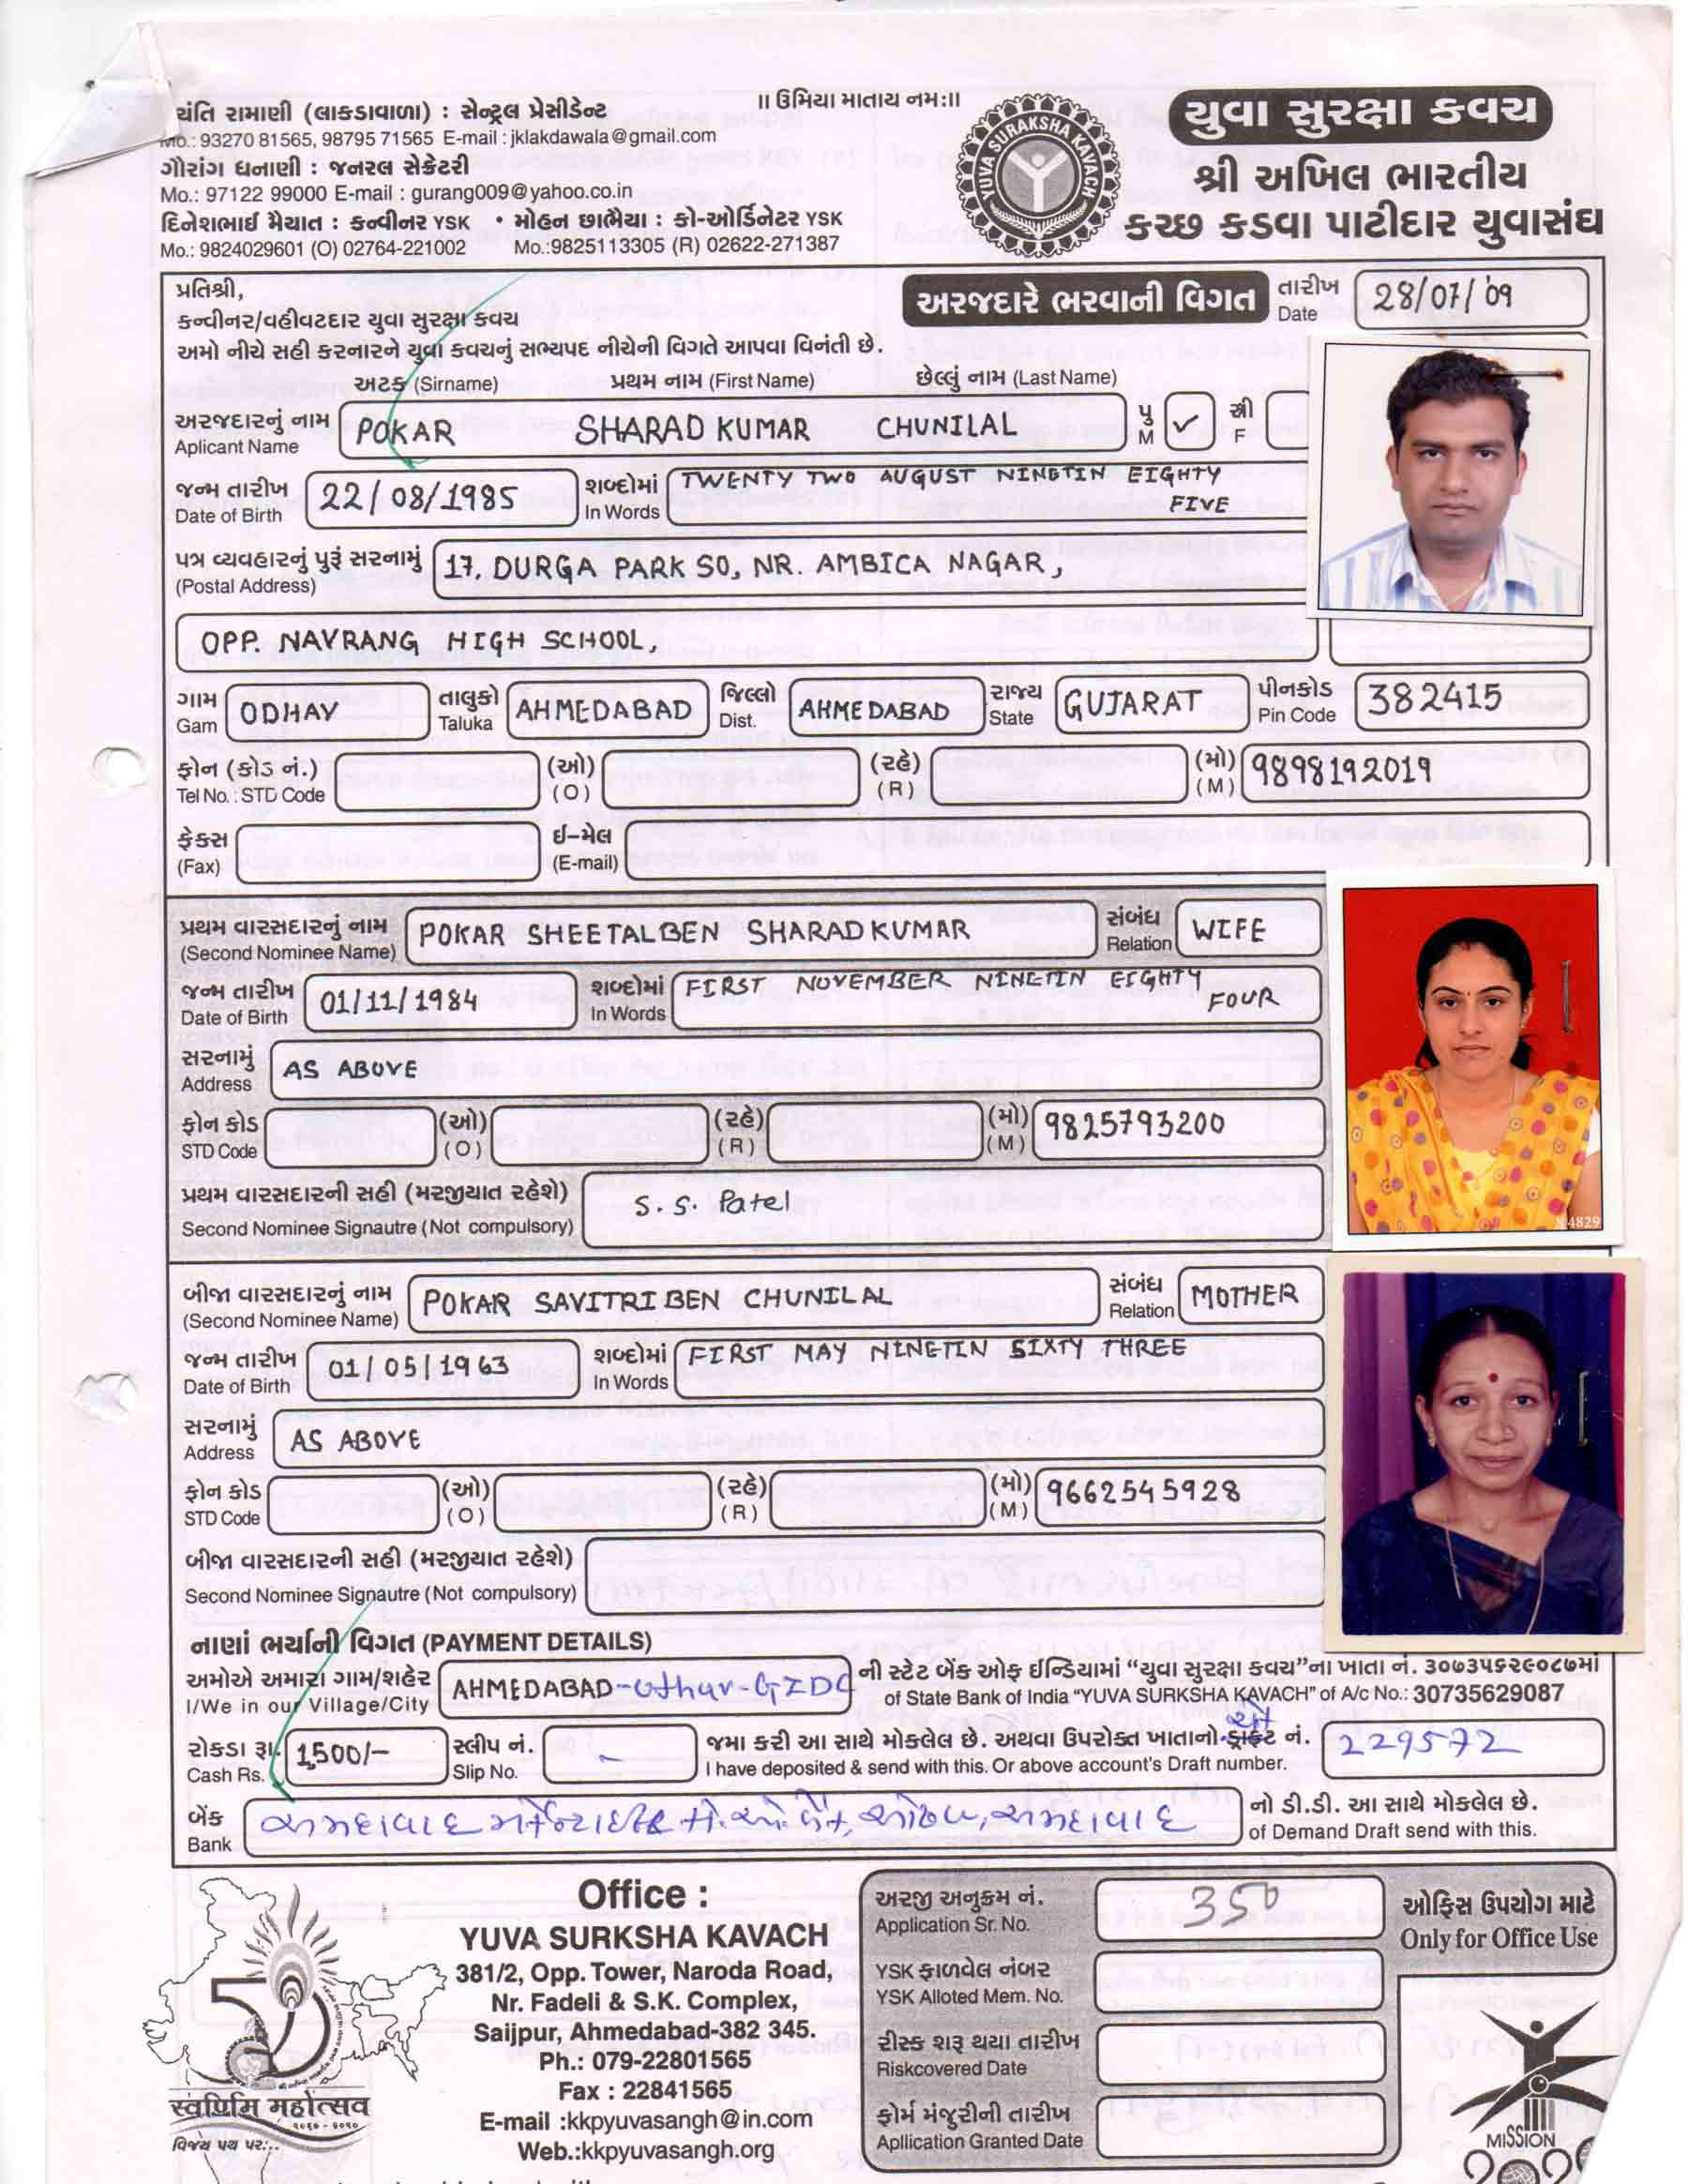 યંતિ રામાણી (લાકડાવાળા) : સેન્ટ્રલ પ્રેસીડેન્ટ
Mo.: 93270 81565, 98795 71565 E-mail : jklakdawala@gmail.com
ગૌરાંગ ધનાણી : જનરલ સેક્રેટરી
Mo.: 97122 99000 E-mail : gurang009@yahoo.co.in
દિનેશભાઈ મૈયાત : કન્વીનર YSK • મોહન છાભૈયા : કો-ઓર્ડિનેટર YSK
Mo.: 9824029601 (O) 02764-221002 Mo.:9825113305 (R) 02622-271387
॥ ઉમિયા માતાય નમઃ॥
YUVA SURAKSHA KAVACH
યુવા સુરક્ષા કવચ
શ્રી અખિલ ભારતીય
કચ્છ કડવા પાટીદાર યુવાસંઘ
પ્રતિશ્રી,
અરજદારે ભરવાની વિગત તારીખ Date 28/07/'09
કન્વીનર/વહીવટદાર યુવા સુરક્ષા કવચ
અમો નીચે સહી કરનારને યુવા કવચનું સભ્યપદ નીચેની વિગતે આપવા વિનંતી છે.
અટક (Sirname) પ્રથમ નામ (First Name) છેલ્લું નામ (Last Name)
અરજદારનું નામ Aplicant Name POKAR SHARAD KUMAR CHUNILAL પુ M ✓ સ્ત્રી F
જન્મ તારીખ Date of Birth 22/08/1985 શબ્દોમાં In Words TWENTY TWO AUGUST NINETIN EIGHTY
FIVE
પત્ર વ્યવહારનું પુરૂં સરનામું (Postal Address) 17, DURGA PARK SO, NR. AMBICA NAGAR,
OPP. NAVRANG HIGH SCHOOL,
ગામ Gam ODHAV તાલુકો Taluka AHMEDABAD જિલ્લો Dist. AHMEDABAD રાજ્ય State GUJARAT પીનકોડ Pin Code 382415
ફોન (કોડ નં.) Tel No. : STD Code (ઓ) (O) (રહે) (R) (મો) (M) 9898192019
ફેક્સ (Fax) ઈ-મેલ (E-mail)
પ્રથમ વારસદારનું નામ (Second Nominee Name) POKAR SHEETALBEN SHARADKUMAR સંબંધ Relation WIFE
જન્મ તારીખ Date of Birth 01/11/1984 શબ્દોમાં In Words FIRST NOVEMBER NINETIN EIGHTY
FOUR
સરનામું Address AS ABOVE
ફોન કોડ STD Code (ઓ) (O) (રહે) (R) (મો) (M) 9825793200
પ્રથમ વારસદારની સહી (મરજીયાત રહેશે)
Second Nominee Signautre (Not compulsory) S. S. Patel
4829
બીજા વારસદારનું નામ (Second Nominee Name) POKAR SAVITRIBEN CHUNILAL સંબંધ Relation MOTHER
જન્મ તારીખ Date of Birth 01/05/1963 શબ્દોમાં In Words FIRST MAY NINETIN SIXTY THREE
સરનામું Address AS ABOVE
ફોન કોડ STD Code (ઓ) (O) (રહે) (R) (મો) (M) 9662545928
બીજા વારસદારની સહી (મરજીયાત રહેશે)
Second Nominee Signautre (Not compulsory)
નાણાં ભર્યાની વિગત (PAYMENT DETAILS)
અમોએ અમારા ગામ/શહેર AHMEDABAD ની સ્ટેટ બેંક ઓફ ઈન્ડિયામાં “યુવા સુરક્ષા કવચ”ના ખાતા નં. ૩૦૭૩૫૬૨૯૦૮૭માં
I/We in our Village/City of State Bank of India “YUVA SURKSHA KAVACH” of A/c No.: 30735629087
રોકડા રૂા. 1,500/- સ્લીપ નં. - જમા કરી આ સાથે મોકલેલ છે. અથવા ઉપરોક્ત ખાતાનો ડ્રાફ્ટ નં. 229572
Cash Rs. Slip No. I have deposited & send with this. Or above account's Draft number.
બેંક Bank નો ડી.ડી. આ સાથે મોકલેલ છે.
of Demand Draft send with this.
Office :
YUVA SURKSHA KAVACH
381/2, Opp. Tower, Naroda Road,
Nr. Fadeli & S.K. Complex,
Saijpur, Ahmedabad-382 345.
Ph.: 079-22801565
Fax : 22841565
E-mail :kkpyuvasangh@in.com
Web.:kkpyuvasangh.org
અરજી અનુક્રમ નં. Application Sr. No. 350
ઓફિસ ઉપયોગ માટે
Only for Office Use
YSK ફાળવેલ નંબર
YSK Alloted Mem. No.
રીસ્ક શરૂ થયા તારીખ
Riskcovered Date
ફોર્મ મંજુરીની તારીખ
Apllication Granted Date
50
स्वर्णिम महोत्सव
૨૦૬૦ - ૨૦૧૦
વિજય પથ પર...
MISSION